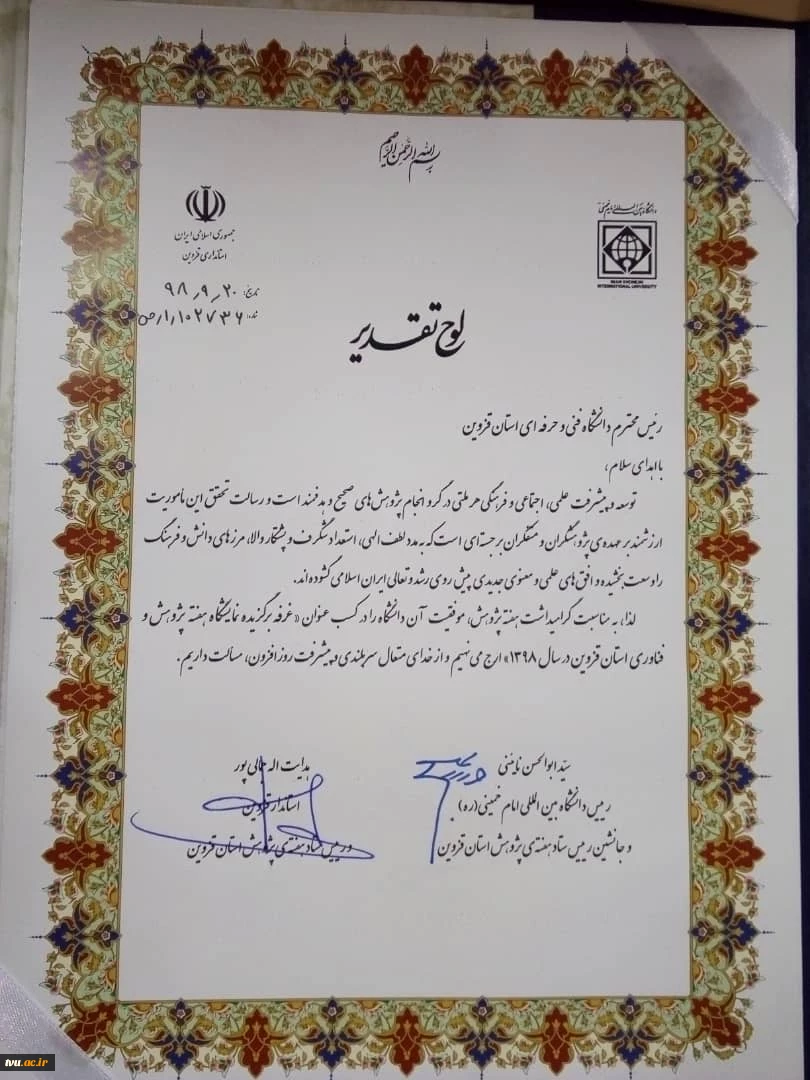 بسم الله الرحمن الرحیم
دانشگاه بین المللی امام خمینی
IMAM KHOMEINI
INTERNATIONAL UNIVERSITY
جمهوری اسلامی ایران
استانداری قزوین
تاریخ: ۹۸٫۹٫۲۰
لوح تقدیر
رئیس محترم دانشگاه فنی و حرفه ای استان قزوین
با اهدای سلام،
توسعه و پیشرفت علمی، اجتماعی و فرهنگی هر ملتی در گرو انجام پژوهش‌های صحیح و هدفمند است و رسالت تحقق این مأموریت
ارزشمند بر عهده‌ی پژوهشگران و متفکران برجسته‌ای است که به مدد لطف الهی، استعداد شگرف و پشتکار والا، مرزهای دانش و فرهنگ
را وسعت بخشیده و افق‌های علمی و معنوی جدیدی پیش روی رشد و تعالی ایران اسلامی گشوده‌اند.
لذا، به مناسبت گرامیداشت هفته پژوهش، موفقیت آن دانشگاه را در کسب عنوان «غرفه برگزیده نمایشگاه هفته پژوهش و
فناوری استان قزوین در سال ۱۳۹۸» ارج می‌نهیم و از خدای متعال سربلندی و پیشرفت روزافزون، مسألت داریم.
سید ابوالحسن نایینی
رییس دانشگاه بین المللی امام خمینی (ره)
و جانشین رییس ستاد هفته‌ی پژوهش استان قزوین
هدایت اله جمالی پور
استاندار قزوین
و رییس ستاد هفته‌ی پژوهش استان قزوین
tvu.ac.ir